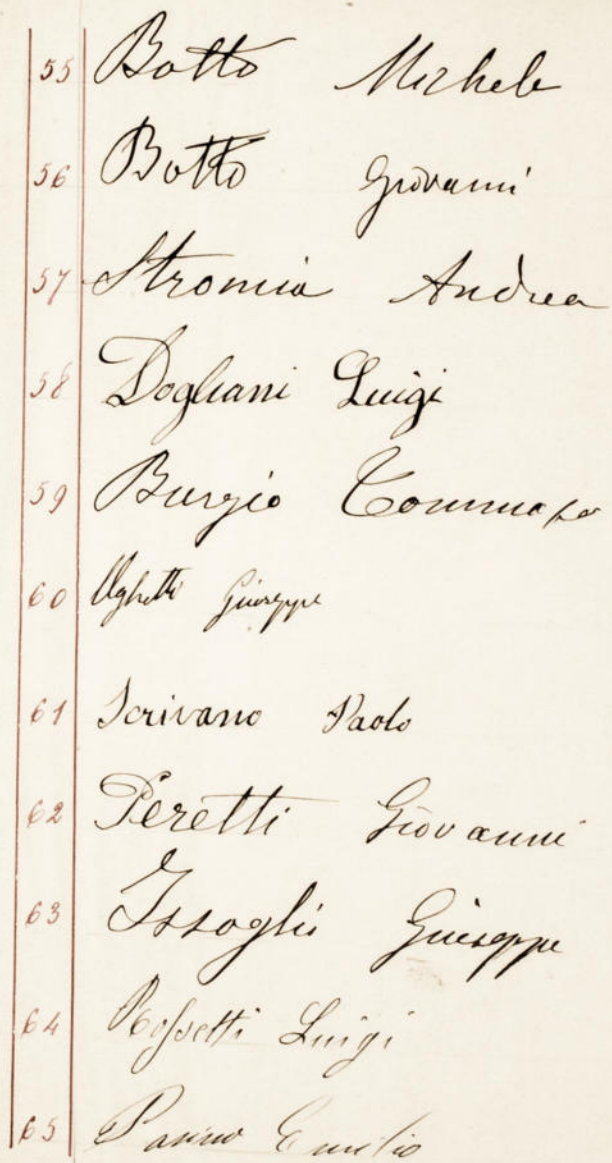 55 Botto Michele
56 Botto Giovanni
57 Stromia Andrea
58 Dogliani Luigi
59 Burzio Tommaso
60 Ughetti Giuseppe
61 Scrivano Paolo
62 Peretti Giovanni
63 Issoglio Giuseppe
64 Rossetti Luigi
65 Panino Emilio